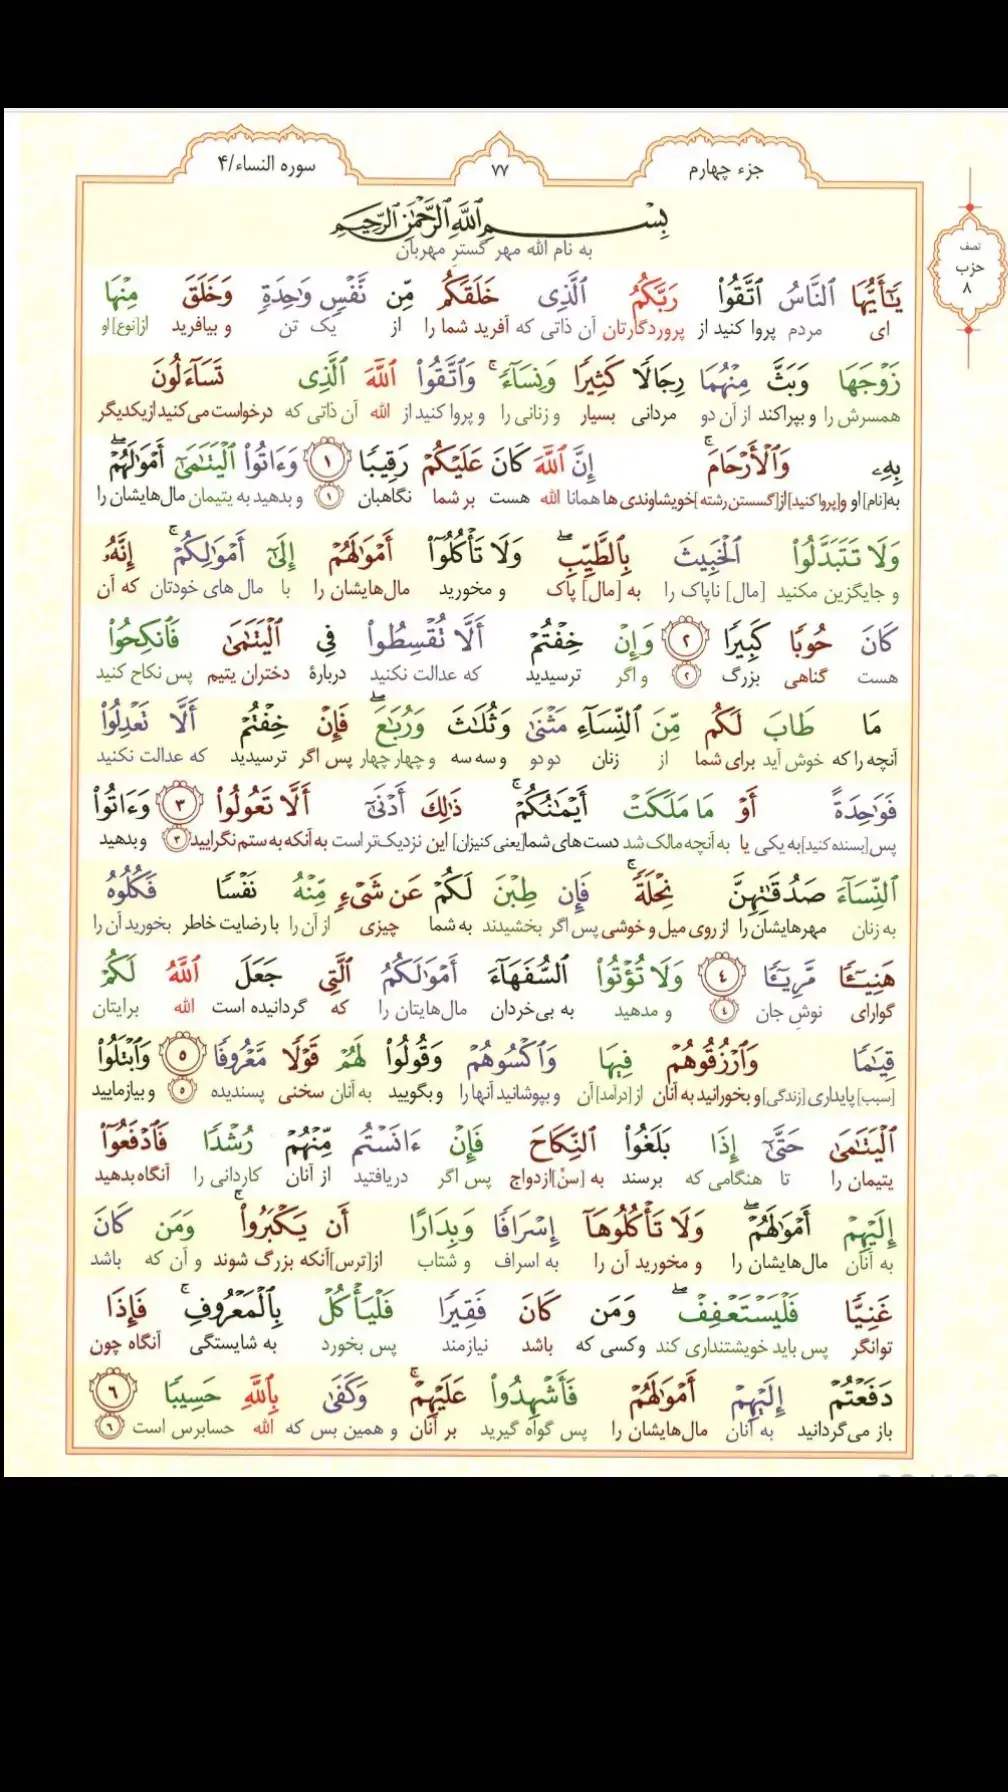 جزء چهارم
۷۷
سوره النساء/۴
نصف
حزب
۸
بِسْمِ ٱللَّهِ ٱلرَّحْمَٰنِ ٱلرَّحِيمِ
به نام الله مهر گسترِ مهربان
يَـٰٓأَيُّهَا ٱلنَّاسُ ٱتَّقُوا۟ رَبَّكُمُ ٱلَّذِى خَلَقَكُم مِّن نَّفْسٍ وَٰحِدَةٍ وَخَلَقَ مِنْهَا
ای مردم پروا کنید از پروردگارتان آن ذاتی که آفرید شما را از یک تن و بیافرید از[نوع] او
زَوْجَهَا وَبَثَّ مِنْهُمَا رِجَالًا كَثِيرًا وَنِسَآءً ۚ وَٱتَّقُوا۟ ٱللَّهَ ٱلَّذِى تَسَآءَلُونَ
همسرش را و بپراکند از آن دو مردانی بسیار و زنانی را و پروا کنید از الله آن ذاتی که درخواست می‌کنید از یکدیگر
بِهِۦ وَٱلْأَرْحَامَ ۚ إِنَّ ٱللَّهَ كَانَ عَلَيْكُمْ رَقِيبًا ١ وَءَاتُوا۟ ٱلْيَتَـٰمَىٰٓ أَمْوَٰلَهُمْ ۖ
به[نام] او و[پروا کنید] از[گسستن رشته] خویشاوندی ها همانا الله هست بر شما نگاهبان ۱ و بدهید به یتیمان مال‌هایشان را
وَلَا تَتَبَدَّلُوا۟ ٱلْخَبِيثَ بِٱلطَّيِّبِ ۖ وَلَا تَأْكُلُوٓا۟ أَمْوَٰلَهُمْ إِلَىٰٓ أَمْوَٰلِكُمْ ۚ إِنَّهُۥ
و جایگزین مکنید [مال] ناپاک را به [مال] پاک و مخورید مال‌هایشان را با مال های خودتان که آن
كَانَ حُوبًا كَبِيرًا ٢ وَإِنْ خِفْتُمْ أَلَّا تُقْسِطُوا۟ فِى ٱلْيَتَـٰمَىٰ فَٱنكِحُوا۟
هست گناهی بزرگ ۲ و اگر ترسیدید که عدالت نکنید دربارهٔ دختران یتیم پس نکاح کنید
مَا طَابَ لَكُم مِّنَ ٱلنِّسَآءِ مَثْنَىٰ وَثُلَـٰثَ وَرُبَـٰعَ ۖ فَإِنْ خِفْتُمْ أَلَّا تَعْدِلُوا۟
آنچه را که خوش آید برای شما از زنان دو دو و سه سه و چهار چهار پس اگر ترسیدید که عدالت نکنید
فَوَٰحِدَةً أَوْ مَا مَلَكَتْ أَيْمَـٰنُكُمْ ۚ ذَٰلِكَ أَدْنَىٰٓ أَلَّا تَعُولُوا۟ ٣ وَءَاتُوا۟
پس[بسنده کنید] به یکی یا به آنچه مالک شد دست های شما[یعنی کنیزان] این نزدیک‌تر است به آنکه به ستم نگرایید ۳ و بدهید
ٱلنِّسَآءَ صَدُقَـٰتِهِنَّ نِحْلَةً ۚ فَإِن طِبْنَ لَكُمْ عَن شَىْءٍ مِّنْهُ نَفْسًا فَكُلُوهُ
به زنان مهرهایشان را از روی میل و خوشی پس اگر بخشیدند به شما چیزی از آن را با رضایت خاطر بخورید آن را
هَنِيٓـًٔا مَّرِيٓـًٔا ٤ وَلَا تُؤْتُوا۟ ٱلسُّفَهَآءَ أَمْوَٰلَكُمُ ٱلَّتِى جَعَلَ ٱللَّهُ لَكُمْ
گوارای نوشِ جان ٤ و مدهید به بی‌خردان مال‌هایتان را که گردانیده است الله برایتان
قِيَـٰمًا وَٱرْزُقُوهُمْ فِيهَا وَٱكْسُوهُمْ وَقُولُوا۟ لَهُمْ قَوْلًا مَّعْرُوفًا ٥ وَٱبْتَلُوا۟
[سبب] پایداری [زندگی] و بخورانید به آنان از [درآمد] آن و بپوشانید آنها را و بگویید به آنان سخنی پسندیده ٥ و بیازمایید
ٱلْيَتَـٰمَىٰ حَتَّىٰٓ إِذَا بَلَغُوا۟ ٱلنِّكَاحَ فَإِنْ ءَانَسْتُم مِّنْهُمْ رُشْدًا فَٱدْفَعُوٓا۟
یتیمان را تا هنگامی که برسند به [سنّ] ازدواج پس اگر دریافتید از آنان کاردانی را آنگاه بدهید
إِلَيْهِمْ أَمْوَٰلَهُمْ ۖ وَلَا تَأْكُلُوهَآ إِسْرَافًا وَبِدَارًا أَن يَكْبَرُوا۟ ۚ وَمَن كَانَ
به آنان مال‌هایشان را و مخورید آن را به اسراف و شتاب از[ترس] آنکه بزرگ شوند و آن که باشد
غَنِيًّا فَلْيَسْتَعْفِفْ ۖ وَمَن كَانَ فَقِيرًا فَلْيَأْكُلْ بِٱلْمَعْرُوفِ ۚ فَإِذَا
توانگر پس باید خویشتنداری کند و کسی که باشد نیازمند پس بخورد به شایستگی آنگاه چون
دَفَعْتُمْ إِلَيْهِمْ أَمْوَٰلَهُمْ فَأَشْهِدُوا۟ عَلَيْهِمْ ۚ وَكَفَىٰ بِٱللَّهِ حَسِيبًا ٦
باز می‌گردانید به آنان مال‌هایشان را پس گواه گیرید بر آنان و همین بس که الله حسابرس است ٦